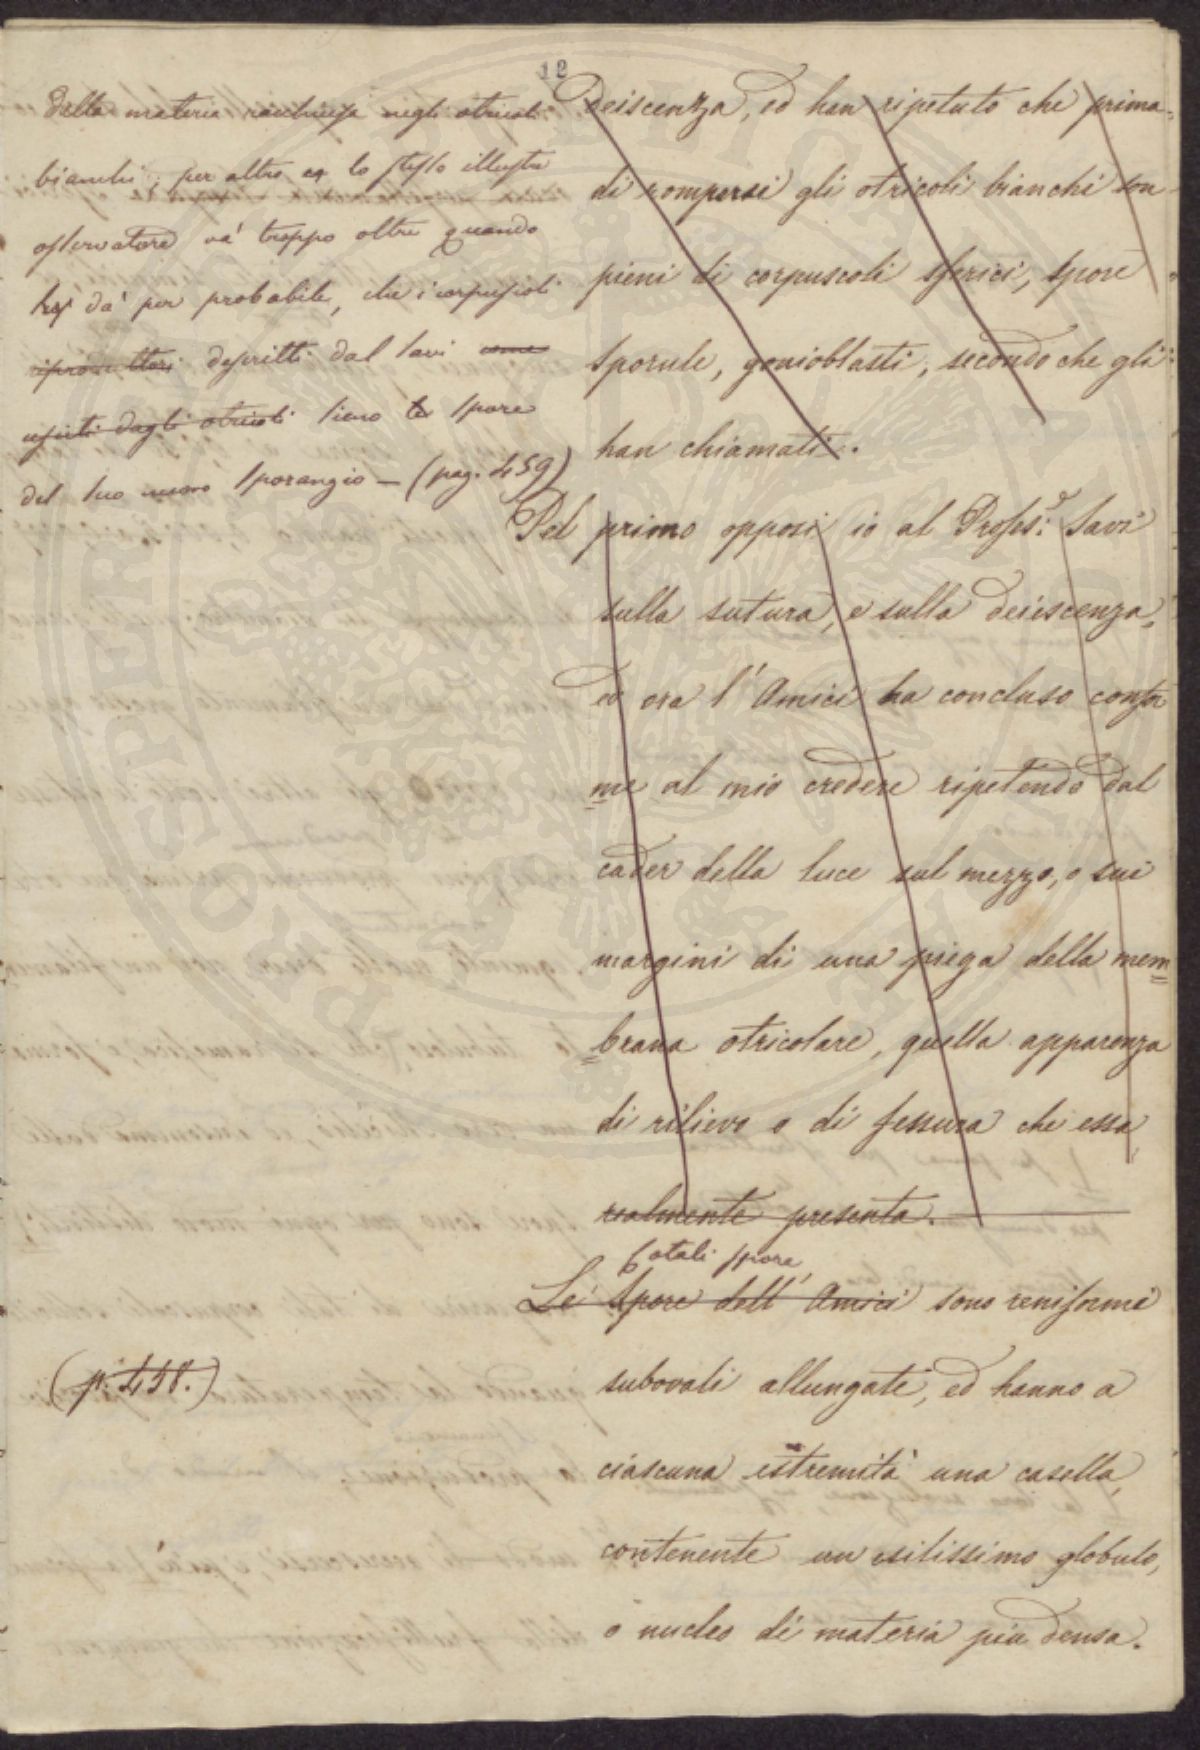 12
della materia racchiusa negli otricoli
bianchi; per altro lo stesso illustre
osservatore va' troppo oltre quando
da' per probabile, che i corpuscoli
riproduttori descritti dal Savi come
usciti dagli otricoli sieno le spore
del suo nuovo sporangio — (pag. 459)
deiscenza, ed han ripetuto che prima
di rompersi gli otricoli bianchi son
pieni di corpuscoli sferici, spore
sporule, gonioblasti, secondo che gli
han chiamati.
Pel primo opposi io al Profes.r Savi
sulla sutura, e sulla deiscenza,
ed ora l'Amici ha concluso confor
me al mio credere ripetendo dal
cader della luce sul mezzo, o sui
margini di una piega della mem
brana otricolare, quella apparenza
di rilievo o di fessura che essa
realmente presenta.
Cotali spore
Le Spore dell'Amici sono reniformi
(p. 458.)
subovali allungate, ed hanno a
ciascuna estremità una casella,
contenente un esilissimo globulo,
o nucleo di materia più densa.